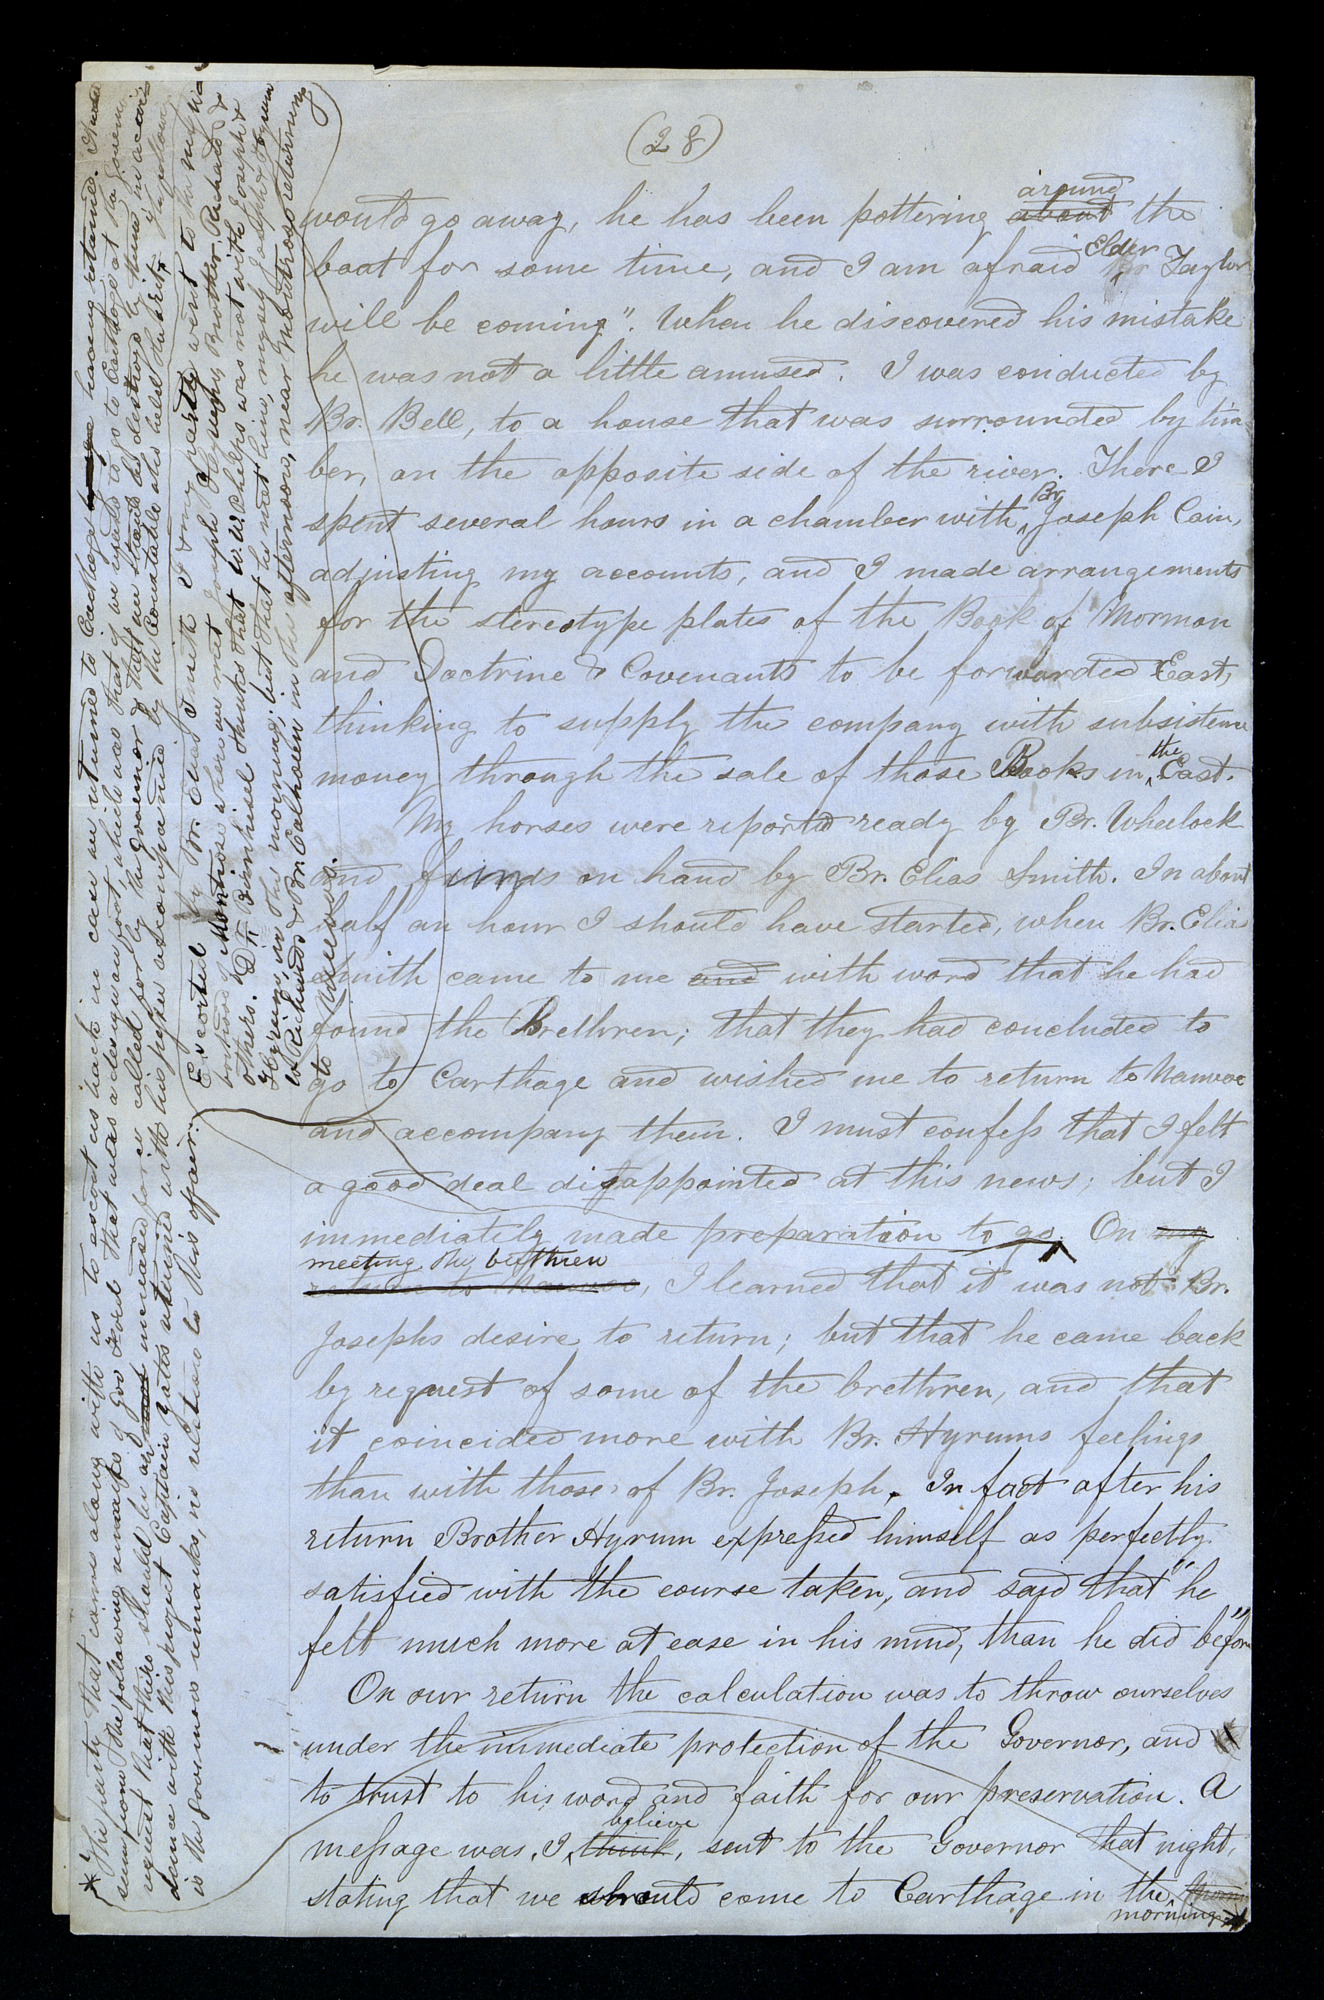 (28)
around
would go away, he has been pottering about the
Elder
boat for some time, and I am afraid Br Taylor
will be coming". When he discovered his mistake
he was not a little amused. I was conducted by
Br. Bell, to a house that was surrounded by tim=
ber, on the opposite side of the river. There I
Br.
spent several hours in a chamber with Joseph Cain,
adjusting my accounts, and I made arrangements
for the stereotype plates of the Book of Mormon
and Doctrine & Covenants to be forwarded East,
thinking to supply the company with subsistence
the
money through the sale of those Books in East.
My horses were reported ready by Br. Wheelock
and funds on hand by Br. Elias Smith. In about
half an hour I should have started, when Br. Elias
Smith came to me and with word that he had
found the Brethren; that they had concluded to
go to Carthage and wished me to return to Nauvoo
and accompany them. I must confess that I felt
a good deal disappointed at this news; but I
immediately made preparation to go. On my
meeting the brethren
return to Nauvoo, I learned that it was not Br.
Josephs desire to return; but that he came back
by request of some of the brethren, and that
it coincided more with Br. Hyrums feelings
than with those of Br. Joseph. In fact after his
return Brother Hyrum expressed himself as perfectly
satisfied with the course taken, and said that "he
felt much more at ease in his mind, than he did before"
On our return the calculation was to throw ourselves
under the immediate protection of the Governor, and
to trust to his word and faith for our preservation. A
believe
message was, I think, sent to the Governor that night,
stating that we should come to Carthage in the morn
morning
* The party that came along with us to escort us back in case we returned to Carthage having returned.
seen from the following remarks of Gov Ford that was a design on foot, which was that if we refused to go to Carthage at the Governors
request that there should be an increased force called for by the Governor & that we should be destroyed by them in accor=
dance with this project Captain Yates returned with his posse accompanied by the Constable who held the writ. The following
is the Governors remarks, in relation to this affair:
Escorted by Br. Elias Smith I & my party went to the
of Montrose where we met Joseph, Hyrum, Brother Richards &
others. Dr. Bernhisel thinks that W W Phelps was not with Joseph &
Hyrum in the morning; but that he met him, myself, Joseph & Hyrum
W Richards & Br. Calhoon in the afternoon, near Montrose returning
to Nauvoo.